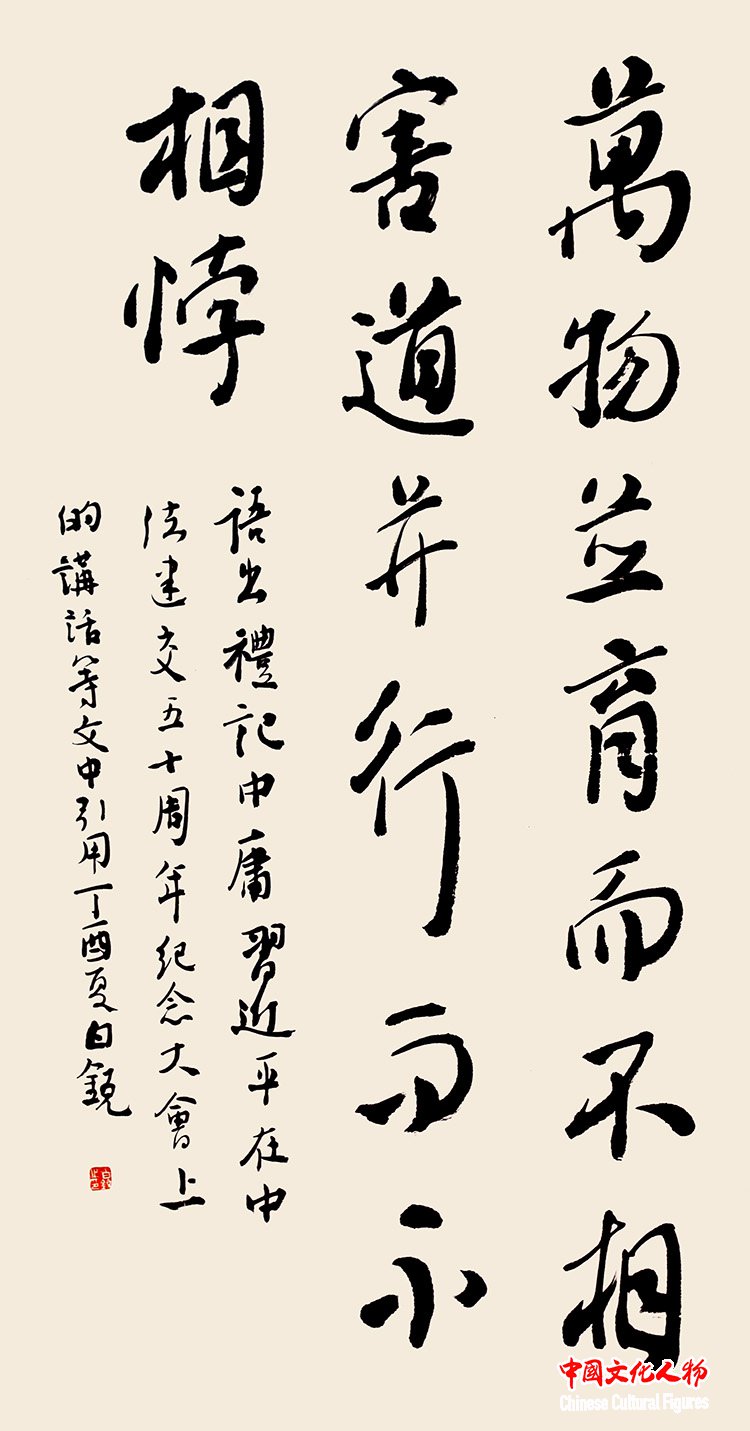 萬物並育而不相
害道并行而不
相悖
語出禮記中庸習近平在中
法建交五十周年纪念大會上
的講話等文中引用丁酉夏白銳
中國文化人物
Chinese Cultural Figures